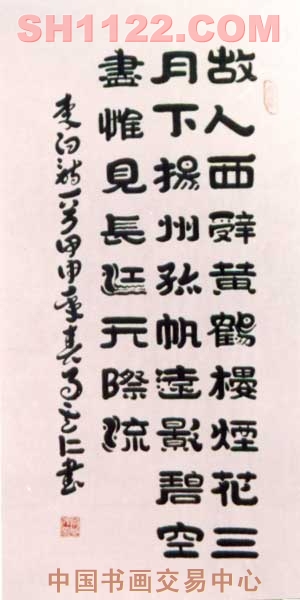 SH1122.COM
故人西辭黄鶴樓煙花三
月下揚州孤帆遠影碧空
盡惟見長江天際流
李白詩一首甲申年仁書
中国书画交易中心